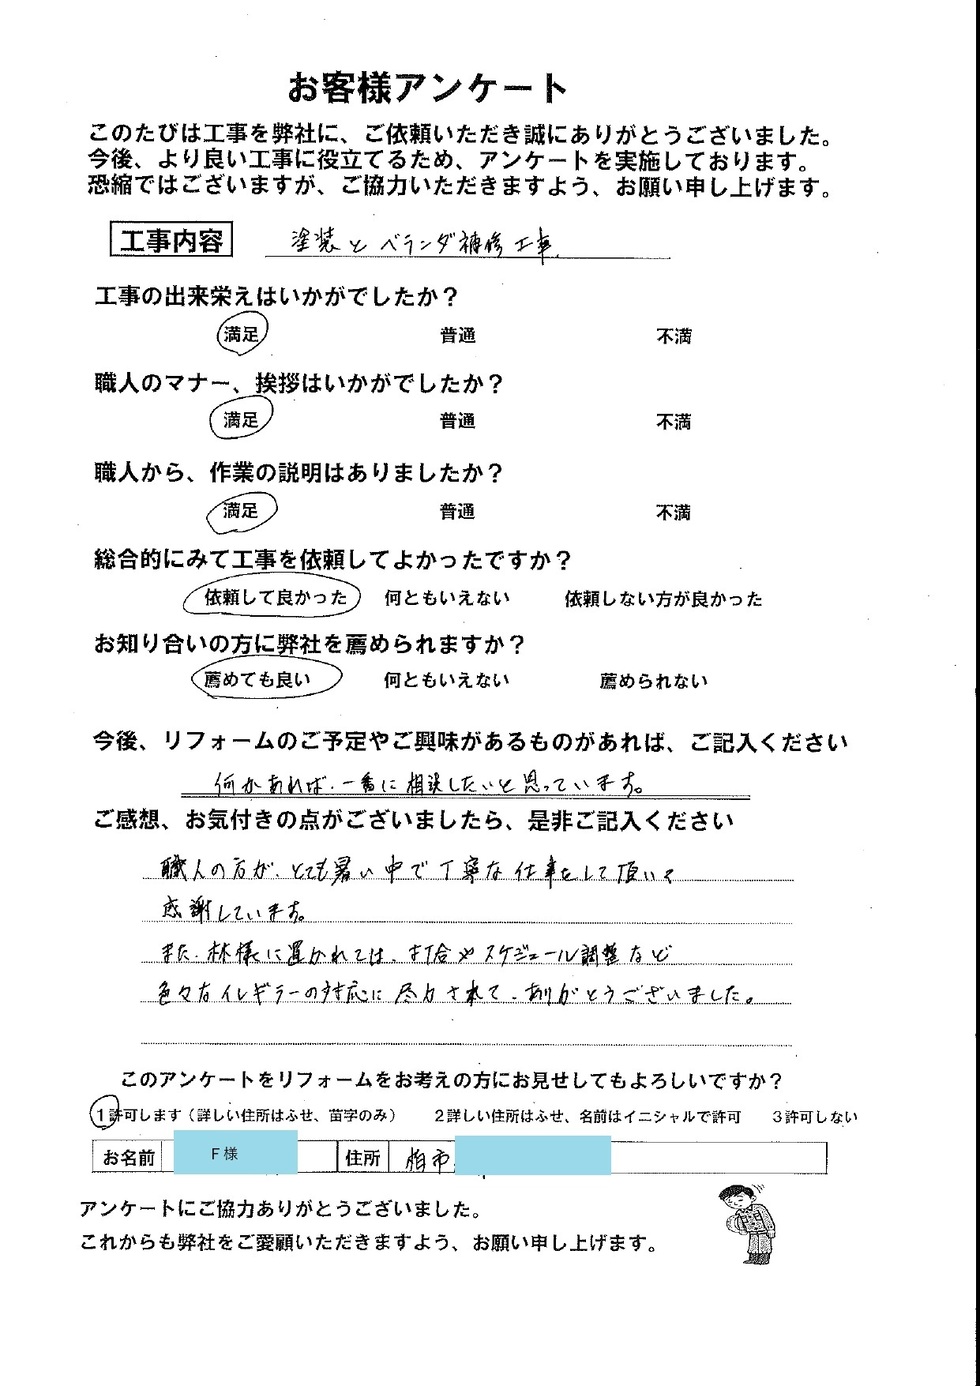 お客様アンケート
このたびは工事を弊社に、ご依頼いただき誠にありがとうございました。
今後、より良い工事に役立てるため、アンケートを実施しております。
恐縮ではございますが、ご協力いただきますよう、お願い申し上げます。
工事内容 塗装とベランダ補修工事.
工事の出来栄えはいかがでしたか？
満足 普通 不満
職人のマナー、挨拶はいかがでしたか？
満足 普通 不満
職人から、作業の説明はありましたか？
満足 普通 不満
総合的にみて工事を依頼してよかったですか？
依頼して良かった 何ともいえない 依頼しない方が良かった
お知り合いの方に弊社を薦められますか？
薦めても良い 何ともいえない 薦められない
今後、リフォームのご予定やご興味があるものがあれば、ご記入ください
何かあれば、一番に相談したいと思っています。
ご感想、お気付きの点がございましたら、是非ご記入ください
職人の方が、とても暑い中で丁寧な仕事をして頂いて
感謝しています。
また、林様に置かれては、打合やスケジュール調整など
色々なイレギラーの対応に尽力されて、ありがとうございました。
このアンケートをリフォームをお考えの方にお見せしてもよろしいですか？
1許可します（詳しい住所はふせ、苗字のみ） 2詳しい住所はふせ、名前はイニシャルで許可 3許可しない
お名前 F様 住所 柏市
アンケートにご協力ありがとうございました。
これからも弊社をご愛顧いただきますよう、お願い申し上げます。